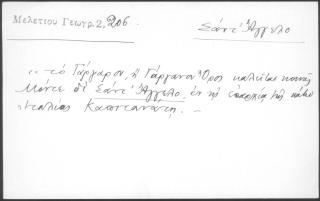 Μελετίου Γεωγρ. 2, 206
Σάντ' Ἄγγελο
.. τὸ Γάργαρον, ἢ Γάργανον Ὄρος καλεῖται κοινῶς
Μόντε δὶ Σάντ' Ἄγγελο, ἐν τῇ ἐπαρχίᾳ τῆς κάτω
Ἰταλίας Καπιτανάτῃ. —